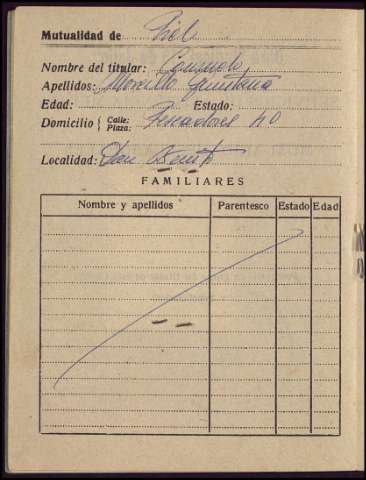 Mutualidad de Piel
Nombre del titular: Consuelo
Apellidos: Morcillo Quintana
Edad: Estado:
Domicilio { Calle: Plaza: Pescadores 40
Localidad: Don Benito
FAMILIARES
Nombre y apellidos Parentesco Estado Edad